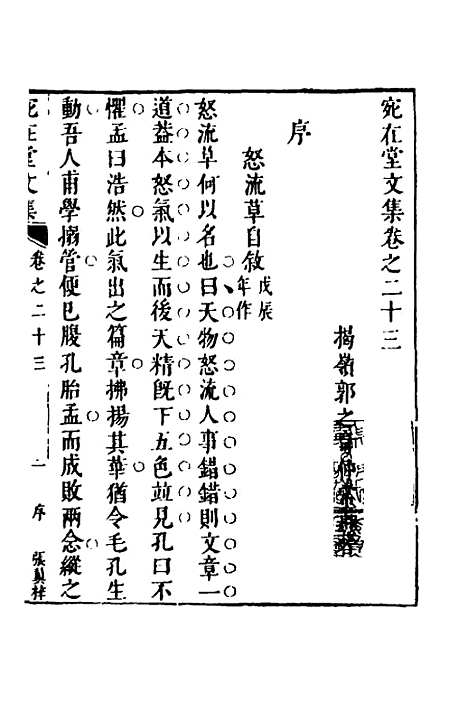 宛在堂文集卷之二十三
揭嶺郭之
序
怒流草自敘 戊辰年作
怒流草何以名也曰天物怒流人事錯錯則文章一
道葢本怒氣以生而後天精旣下五色竝見孔曰不
懼孟曰浩然此氣出之篇章拂揚其華猶令毛孔生
動吾人甫學搦管便已腹孔胎孟而成敗兩念縱之
宛在堂文集
卷之二十三
一
序